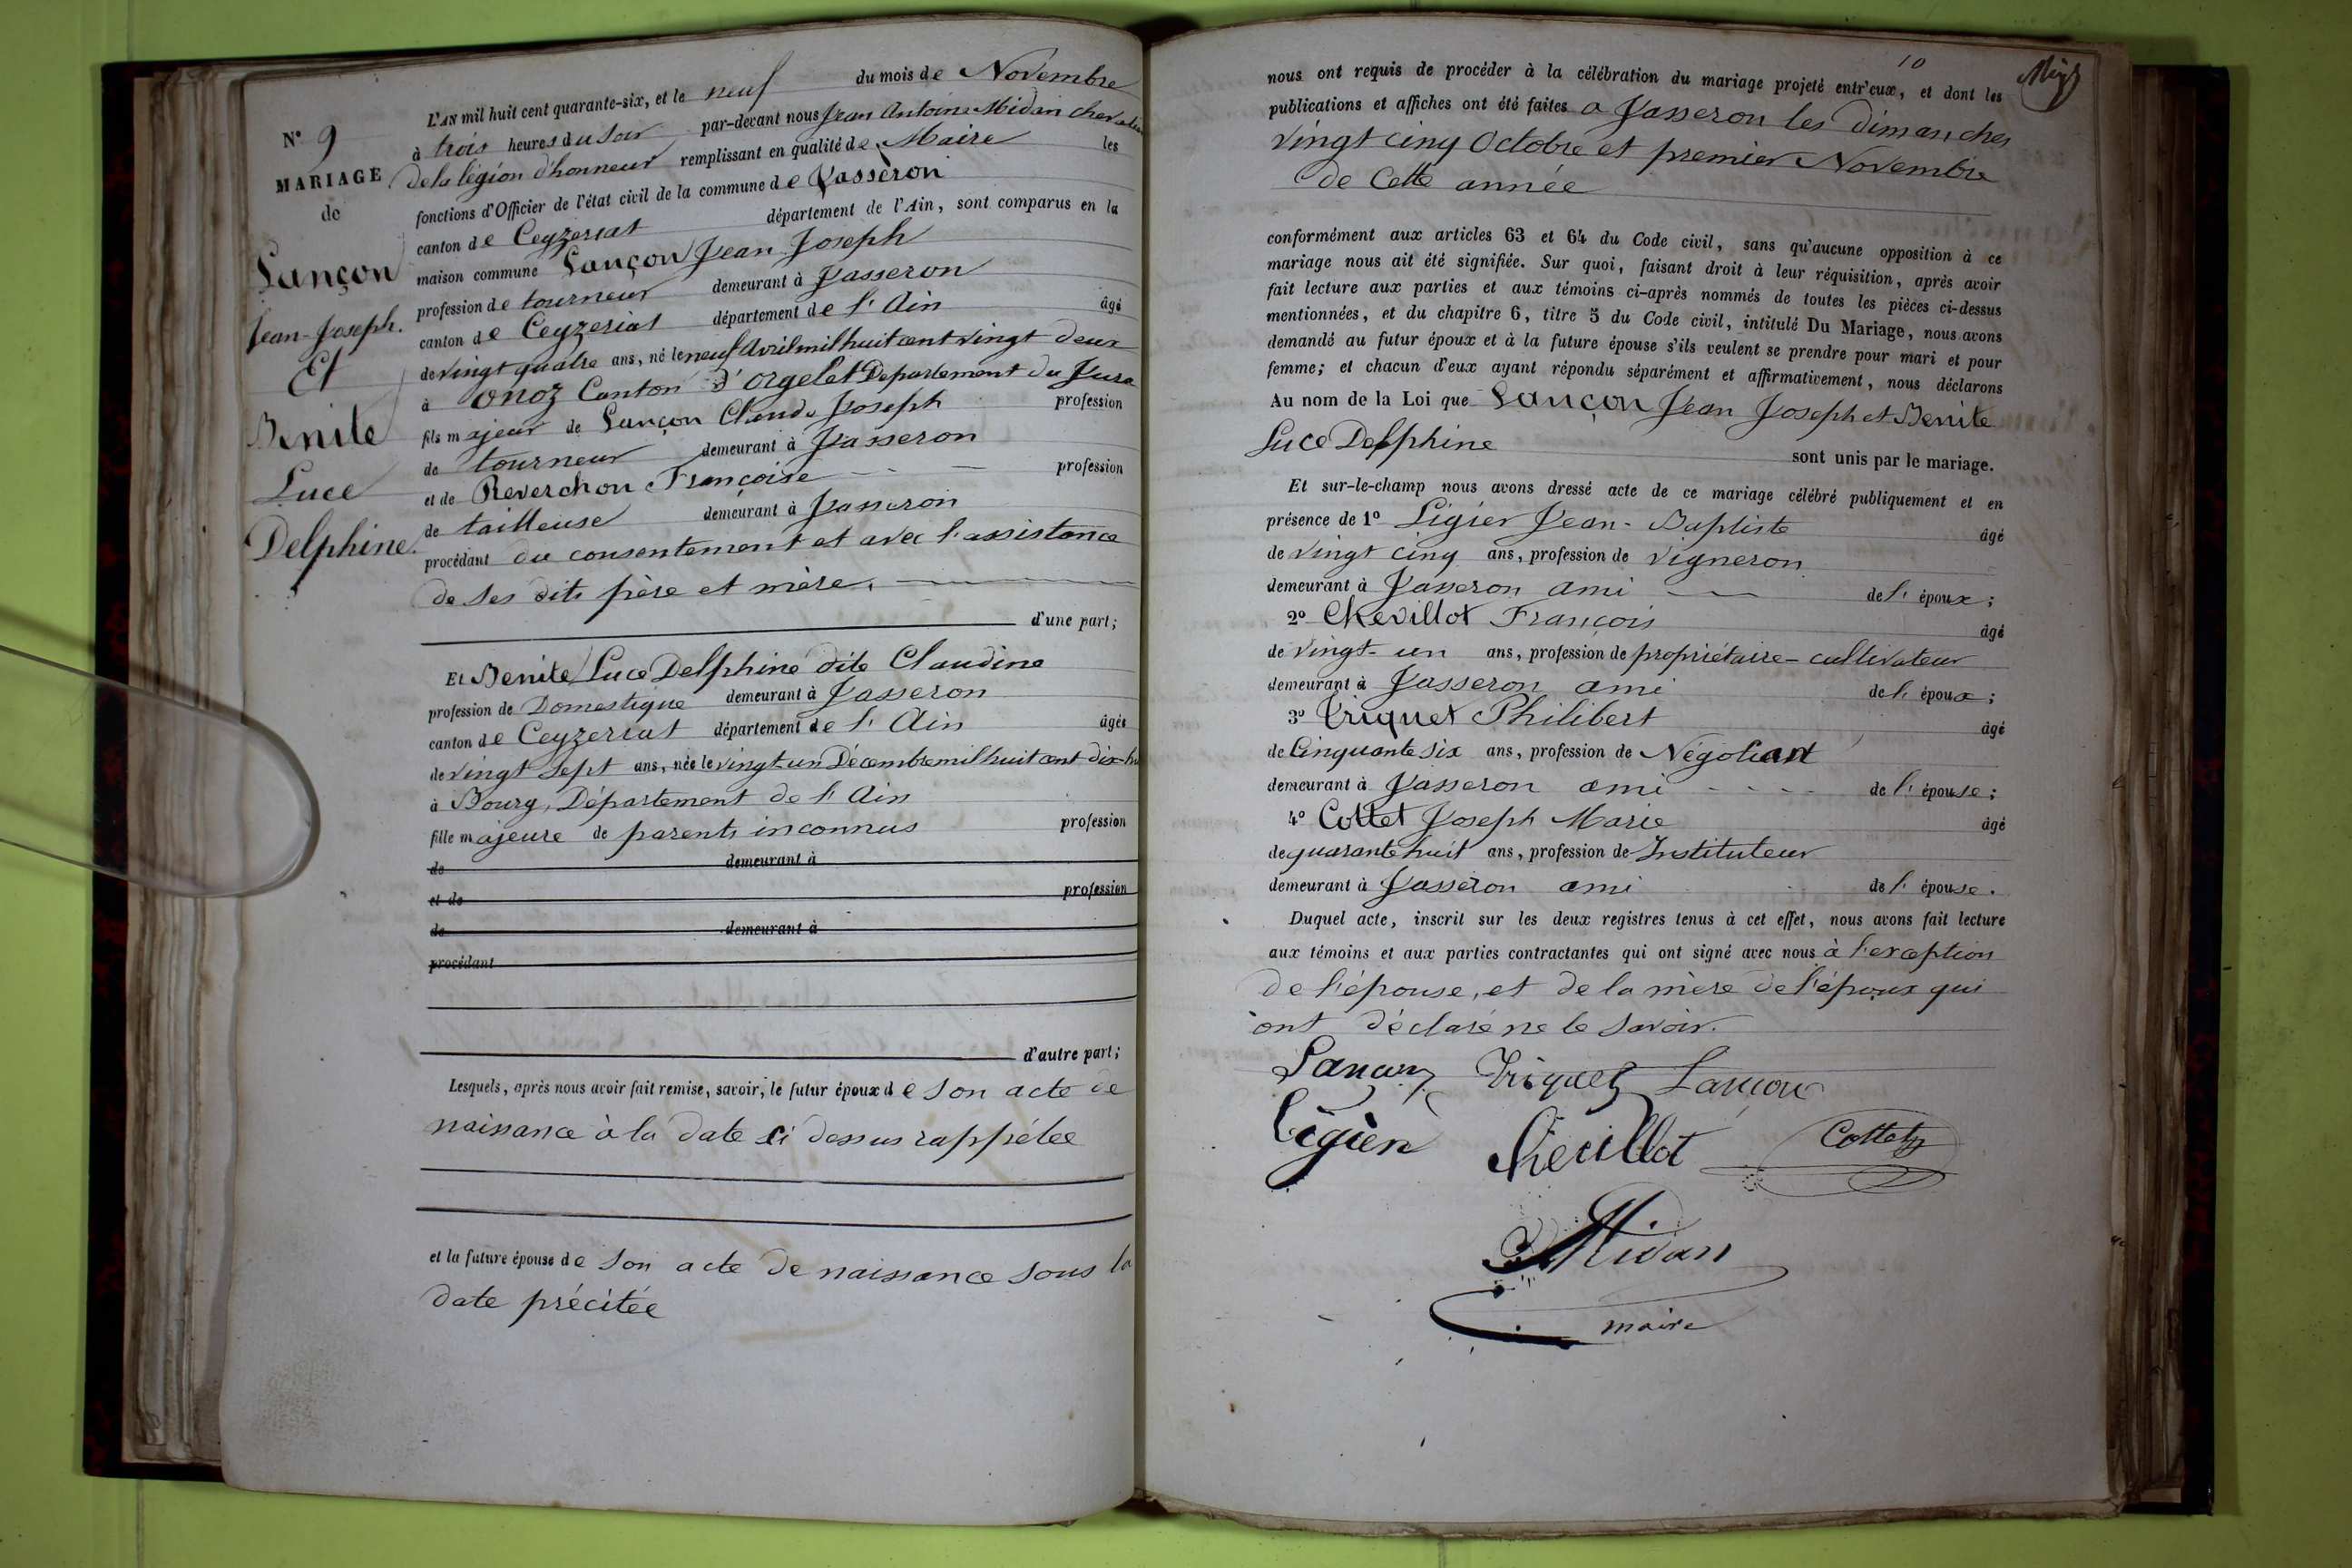 N° 9
MARIAGE
de
Lançon
Jean-Joseph.
Et
Benite
Luce
Delphine.
L'AN mil huit cent quarante-six, et le neuf du mois de Novembre
à trois heures du soir par-devant nous Jean Antoine Midan chevalier
de la légion d'honneur remplissant en qualité de Maire les
fonctions d'Officier de l'état civil de la commune de Jasseron
canton de Ceyzeriat département de l'Ain, sont comparus en la
maison commune Lançon Jean Joseph
profession de tourneur demeurant à Jasseron
canton de Ceyzeriat département de l'Ain âgé
de vingt quatre ans, né le neuf Avril mil huit cent vingt deux
à Onoz Canton d'Orgelet Departement du Jura
fils majeur de Lançon Claude Joseph profession
de tourneur demeurant à Jasseron
et de Reverchon Françoise profession
de tailleuse demeurant à Jasseron
procédant du consentement et avec l'assistance
de ses dits père et mère.
d'une part;
Et Benite Luce Delphine dite Claudine
profession de Domestique demeurant à Jasseron
canton de Ceyzeriat département de l'Ain âgée
de vingt sept ans, née le vingt-un Décembre mil huit cent dix-hu
à Bourg, Département de l'Ain
fille majeure de parents inconnus profession
de demeurant à
et de profession
de demeurant à
procédant
d'autre part;
Lesquels, après nous avoir fait remise, savoir, le futur époux de son acte de
naissance à la date ci dessus rappelée
et la future épouse de son acte de naissance sous la
date précitée
10
nous ont requis de procéder à la célébration du mariage projeté entr'eux, et dont les
publications et affiches ont été faites a Jasseron les dimanches
vingt cinq Octobre et premier Novembre
de Cette année
conformément aux articles 63 et 64 du Code civil, sans qu'aucune opposition à ce
mariage nous ait été signifiée. Sur quoi, faisant droit à leur réquisition, après avoir
fait lecture aux parties et aux témoins ci-après nommés de toutes les pièces ci-dessus
mentionnées, et du chapitre 6, titre 5 du Code civil, intitulé Du Mariage, nous avons
demandé au futur époux et à la future épouse s'ils veulent se prendre pour mari et pour
femme; et chacun d'eux ayant répondu séparément et affirmativement, nous déclarons
Au nom de la Loi que Lançon Jean Joseph et Benite
Luce Delphine sont unis par le mariage.
Et sur-le-champ nous avons dressé acte de ce mariage célébré publiquement et en
présence de 1° Ligier Jean-Baptiste âgé
de vingt cinq ans, profession de vigneron
demeurant à Jasseron ami de l'époux;
2° Chevillot François âgé
de vingt-un ans, profession de propriétaire-cultivateur
demeurant à Jasseron ami de l'époux;
3° Triquet Philibert âgé
de Cinquante six ans, profession de Négociant
demeurant à Jasseron ami de l'épouse;
4° Cottet Joseph Marie âgé
de quarante huit ans, profession de Instituteur
demeurant à Jasseron ami de l'épouse.
Duquel acte, inscrit sur les deux registres tenus à cet effet, nous avons fait lecture
aux témoins et aux parties contractantes qui ont signé avec nous à l'exception
de l'épouse, et de la mère de l'époux qui
ont déclaré ne le savoir.
Lançon Triquet Lançon
Ligier Chevillot Cottet
Midan
maire